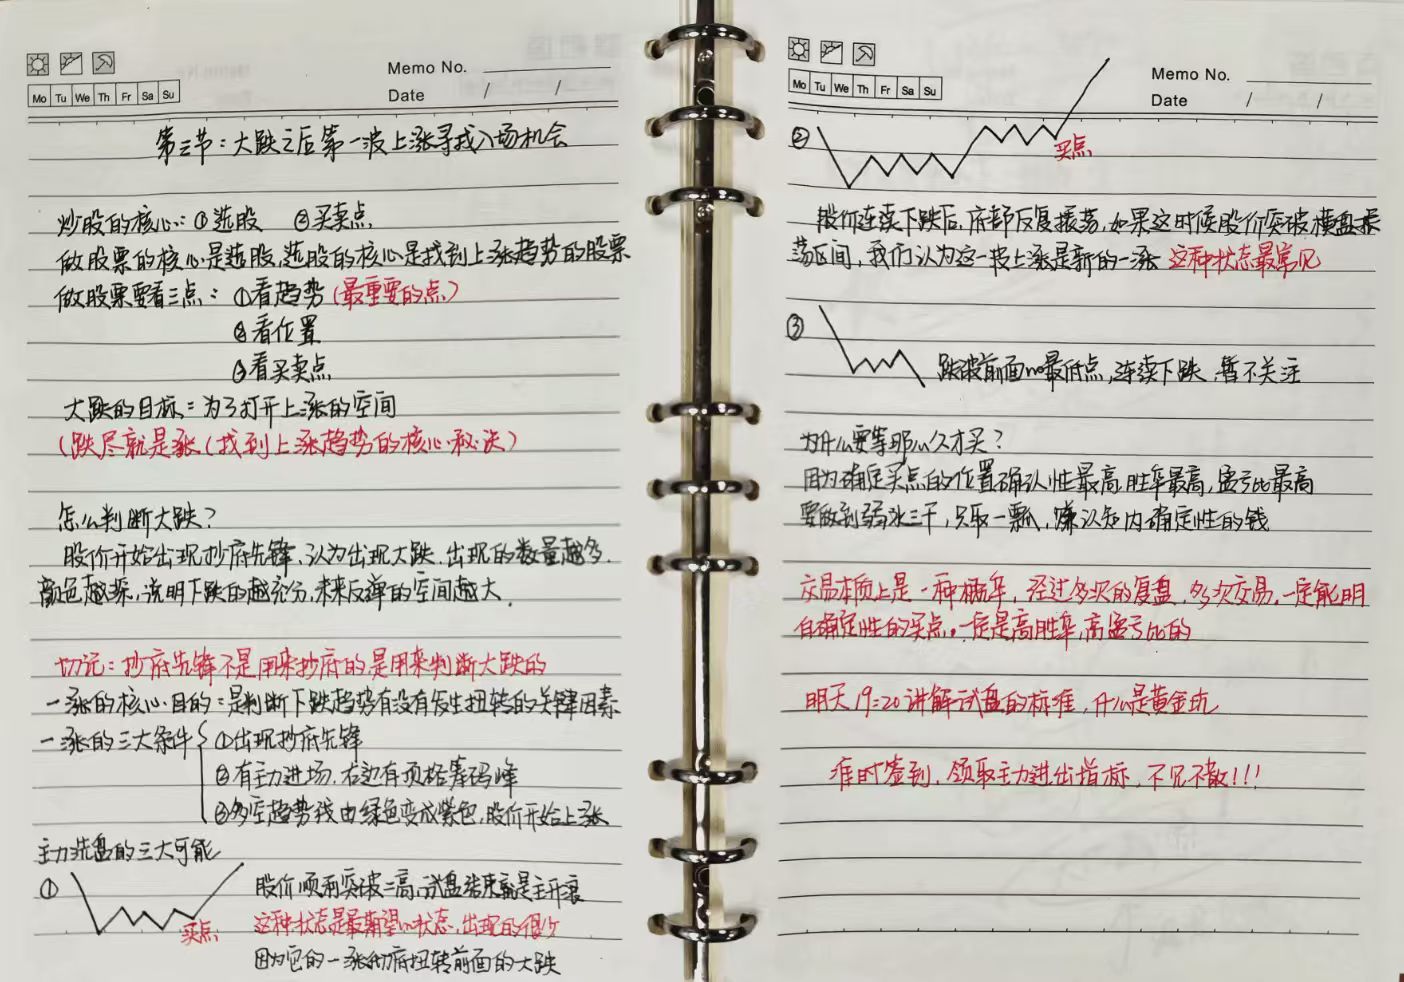 Memo No.
Date / /
Mo Tu We Th Fr Sa Su
第三节：大跌之后第一波上涨寻找入场机会
炒股的核心：①选股 ②买卖点
做股票的核心是选股，选股的核心是找到上涨趋势的股票
做股票要看三点：①看趋势（最重要的点）
②看位置
③看买卖点
大跌的目标：为了打开上涨的空间
（跌尽就是涨（找到上涨趋势的核心秘诀）
怎么判断大跌？
股价开始出现抄底先锋，认为出现大跌，出现的数量越多，
颜色越深，说明下跌的越充分，未来反弹的空间越大。
切记：抄底先锋不是用来抄底的是用来判断大跌的
一涨的核心目的：是判断下跌趋势有没有发生扭转的关键因素
一涨的三大条件 ①出现抄底先锋
②有主力进场，右边有顶格筹码峰
③多空趋势线由绿色变成紫色，股价开始上涨
主力洗盘的三大可能
① 股价顺利突破二高，试盘结束就是主升浪
买点 这种状态是最期望的状态，出现的很少
因为它的一涨彻底扭转前面的大跌
Memo No.
Date / /
Mo Tu We Th Fr Sa Su
② 买点
股价连续下跌后，底部反复振荡，如果这时候股价突破横盘振
荡区间，我们认为这一波上涨是新的一涨 这种状态最常见
③ 跌破前面的最低点，连续下跌，暂不关注
为什么要等那么久才买？
因为确定买点的位置确认性最高，胜率最高，盈亏比最高
要做到弱水三千，只取一瓢，赚认知内确定性的钱
交易本质上是一种概率，经过多次的复盘，多次交易，一定能明
白确定性的买点，一定是高胜率，高盈亏比的
明天19:20讲解试盘的标准，什么是黄金坑
准时签到，领取主力进出指标，不见不散！！！